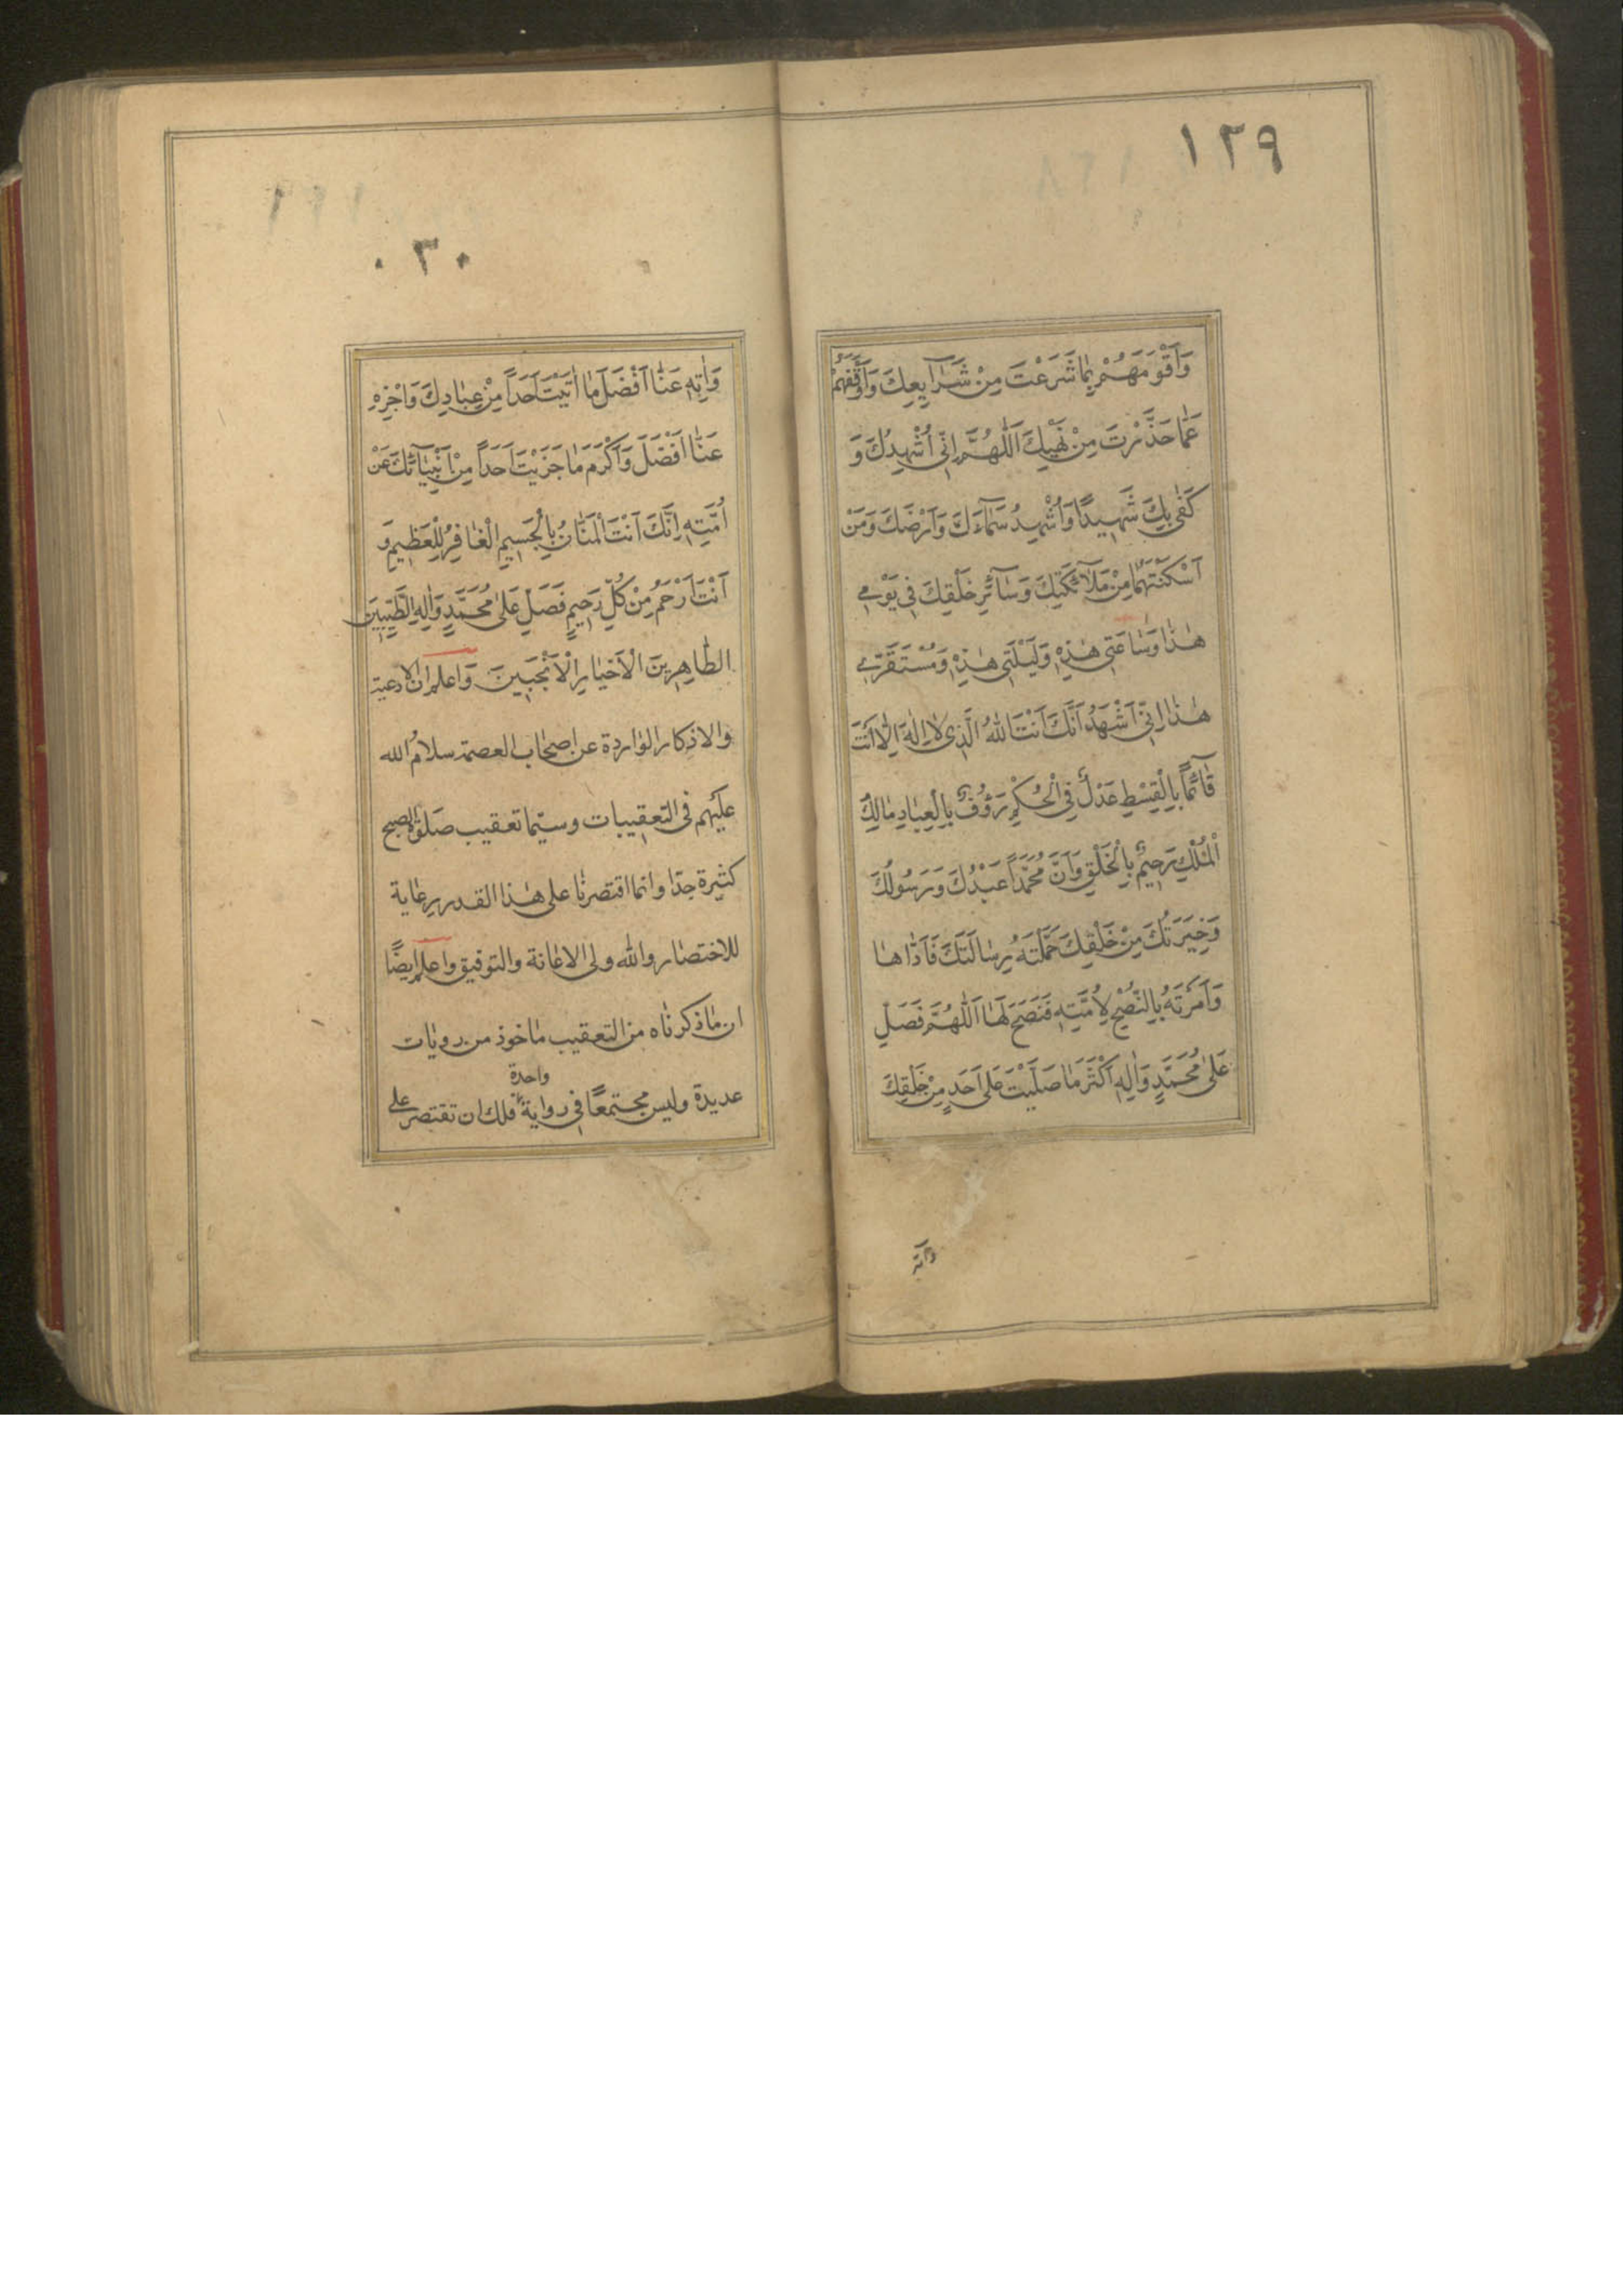 ١٣٩
وَاَقْوَمَهُمْ بِمٰا شَرَعْتَ مِنْ شَرٰايِعِكَ وَاَوْقَفَهُمْ
عَمّٰا حَذَّرْتَ مِنْ نَهْيِكَ اَللّٰهُمَّ اِنّى اُشْهِدُكَ وَ
كَفٰى بِكَ شَهيدًا وَاُشْهِدُ سَمٰاءَكَ وَاَرْضَكَ وَمَنْ
اَسْكَنْتَهُمٰا مِنْ مَلٰآئِكَتِكَ وَسٰآئِرِ خَلْقِكَ فى يَوْمى
هٰذٰا وَسٰاعَتى هٰذِهِ وَلَيْلَتى هٰذِهِ وَمُسْتَقَرّى
هٰذٰا اِنّى اَشْهَدُ اَنَّكَ اَنْتَ اللّٰهُ الَّذى لٰا اِلٰهَ اِلّٰا اَنْتَ
قٰآئِمًا بِالْقِسْطِ عَدْلٌ فِى الْحُكْمِ رَؤُفٌ بِالْعِبٰادِ مٰالِكُ
الْمُلْكِ رَحيمٌ بِالْخَلْقِ وَاَنَّ مُحَمَّدًا عَبْدُكَ وَرَسُولُكَ
وَخِيَرَتُكَ مِنْ خَلْقِكَ حَمَّلْتَهُ رِسٰالَتَكَ فَاَدّٰاهٰا
وَاَمَرْتَهُ بِالنُّصْحِ لِاُمَّتِهِ فَنَصَحَ لَهٰا اَللّٰهُمَّ فَصَلِّ
عَلٰى مُحَمَّدٍ وَاٰلِهِ اَكْثَرَ مٰا صَلَّيْتَ عَلٰى اَحَدٍ مِنْ خَلْقِكَ
وَاٰتِهِ
٠٣٠
وَاٰتِهِ عَنّٰا اَفْضَلَ مٰا اٰتَيْتَ اَحَدًا مِنْ عِبٰادِكَ وَاجْزِهِ
عَنّٰا اَفْضَلَ وَاَكْرَمَ مٰا جَزَيْتَ اَحَدًا مِنْ اَنْبِيٰآئِكَ عَنْ
اُمَّتِهِ اِنَّكَ اَنْتَ الْمَنّٰانُ بِالْجَسيمِ الْغٰافِرُ لِلْعَظيمِ وَ
اَنْتَ اَرْحَمُ مِنْ كُلِّ رَحيمٍ فَصَلِّ عَلٰى مُحَمَّدٍ وَاٰلِهِ الطَّيِّبينَ
الطّٰاهِرينَ الْاَخْيٰارِ الْاَنْجَبينَ وَاعلم ان الادعية
والاذكار الوٰاردة عن اصحٰاب العصمة سلامُ الله
عليهم فى التعقيبات وسيّما تعقيب صَلوٰة الصبح
كثيرة جدّا وانما اقتصرنٰا على هٰذا القدر رعٰاية
للاختصٰار والله ولى الاعٰانة والتوفيق واعلم ايضًا
ان مٰا ذكرنٰاه من التعقيب مٰاخوذ من روٰيات
عديدة وليس مجتمعًا فى رواية واحدة فلك ان تقتصر على